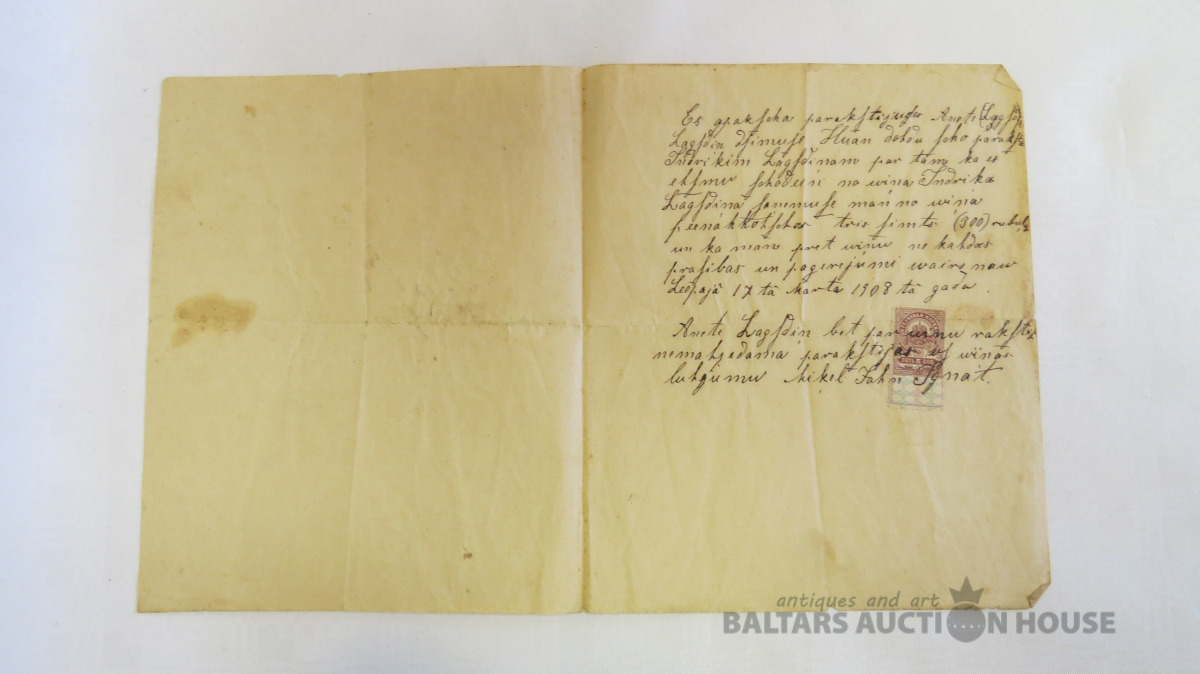 Es apakscha parakstijuse Anete
Lagsdin dsimuse Huan dohdu scho paraksta
Indrikim Lagsdinam par tam, ka es
ehsmu schodeen no wina Indrika
Lagsdina sanemuse man no wina
peenahkkotschas tres simts (300) rubulu
un ka man pret winu ne kahdas
prasibas un pagerejumi wairs naw
Leepajā 17 tā Martā 1908 tā gada.
Anete Lagsdin bet par winu rakstiz
nemahzedama parakstijas us winas
luhgumu Mikel Jahn Ignat.
antiques and art
BALTARS AUCTION HOUSE